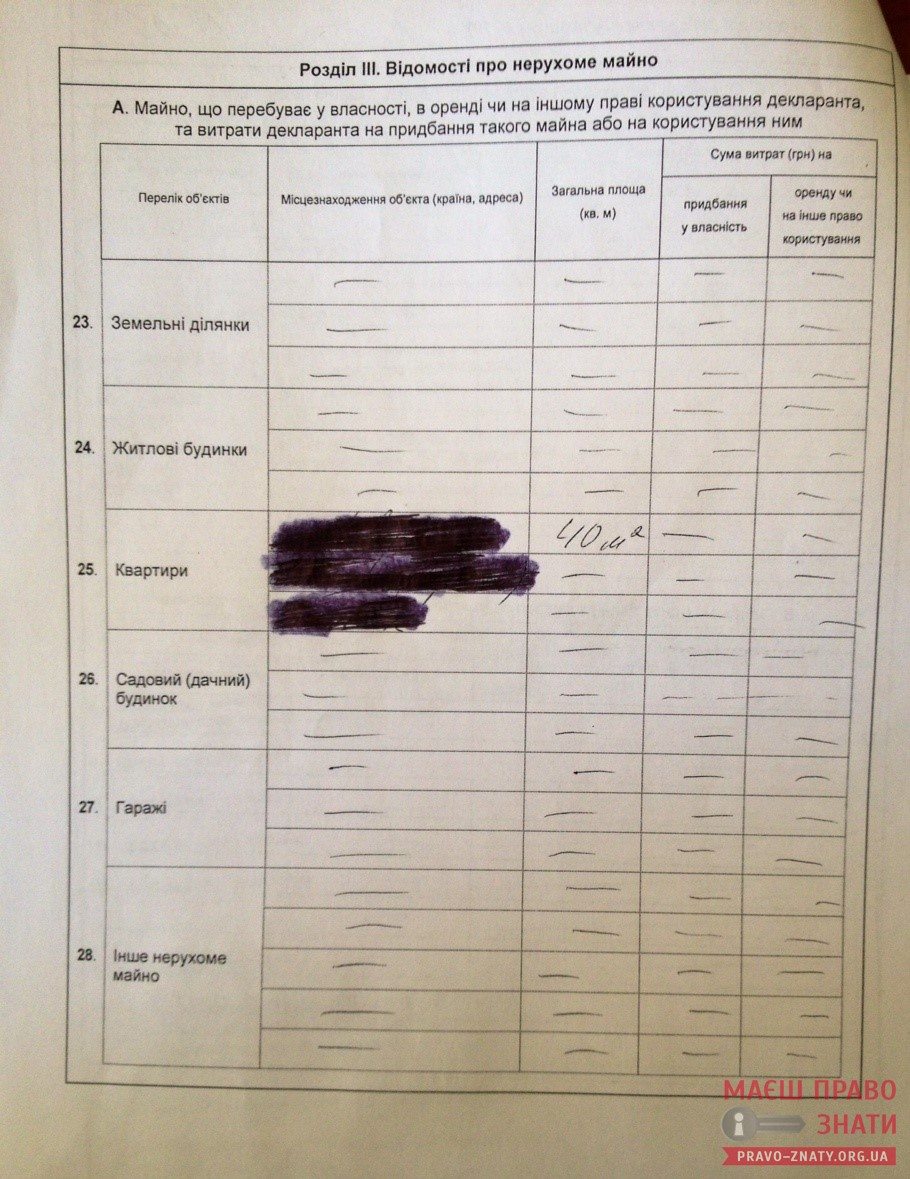 Розділ III. Відомості про нерухоме майно
А. Майно, що перебуває у власності, в оренді чи на іншому праві користування декларанта,
та витрати декларанта на придбання такого майна або на користування ним
Перелік об'єктів
Місцезнаходження об'єкта (країна, адреса)
Загальна площа
(кв. м)
Сума витрат (грн) на
придбання
у власність
оренду чи
на інше право
користування
23. Земельні ділянки
24. Житлові будинки
40 м²
25. Квартири
26. Садовий (дачний)
будинок
27. Гаражі
28. Інше нерухоме
майно
МАЄШ ПРАВО
ЗНАТИ
PRAVO-ZNATY.ORG.UA